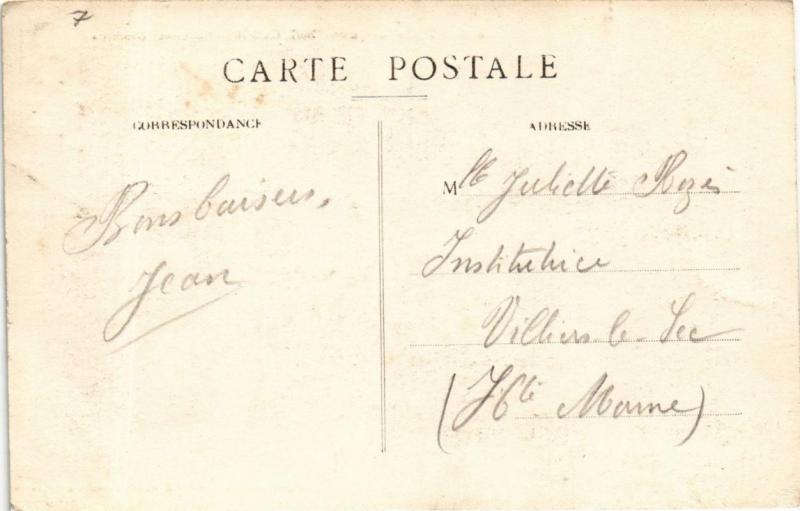 7
CARTE POSTALE
CORRESPONDANCE
ADRESSE
Bons baisers.
Jean
Mlle Juliette Rozès
Institutrice
Villiers-le-Sec
(Hte Marne)